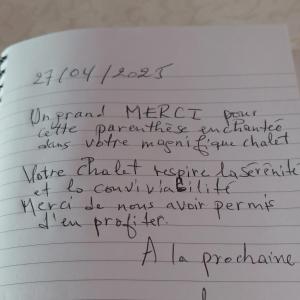 27/04/2025
Un grand MERCI pour
cette parenthèse enchantée
dans votre magnifique chalet
Votre chalet respire la sérénité
et la convivialité
Merci de nous avoir permis
d'en profiter.
A la prochaine